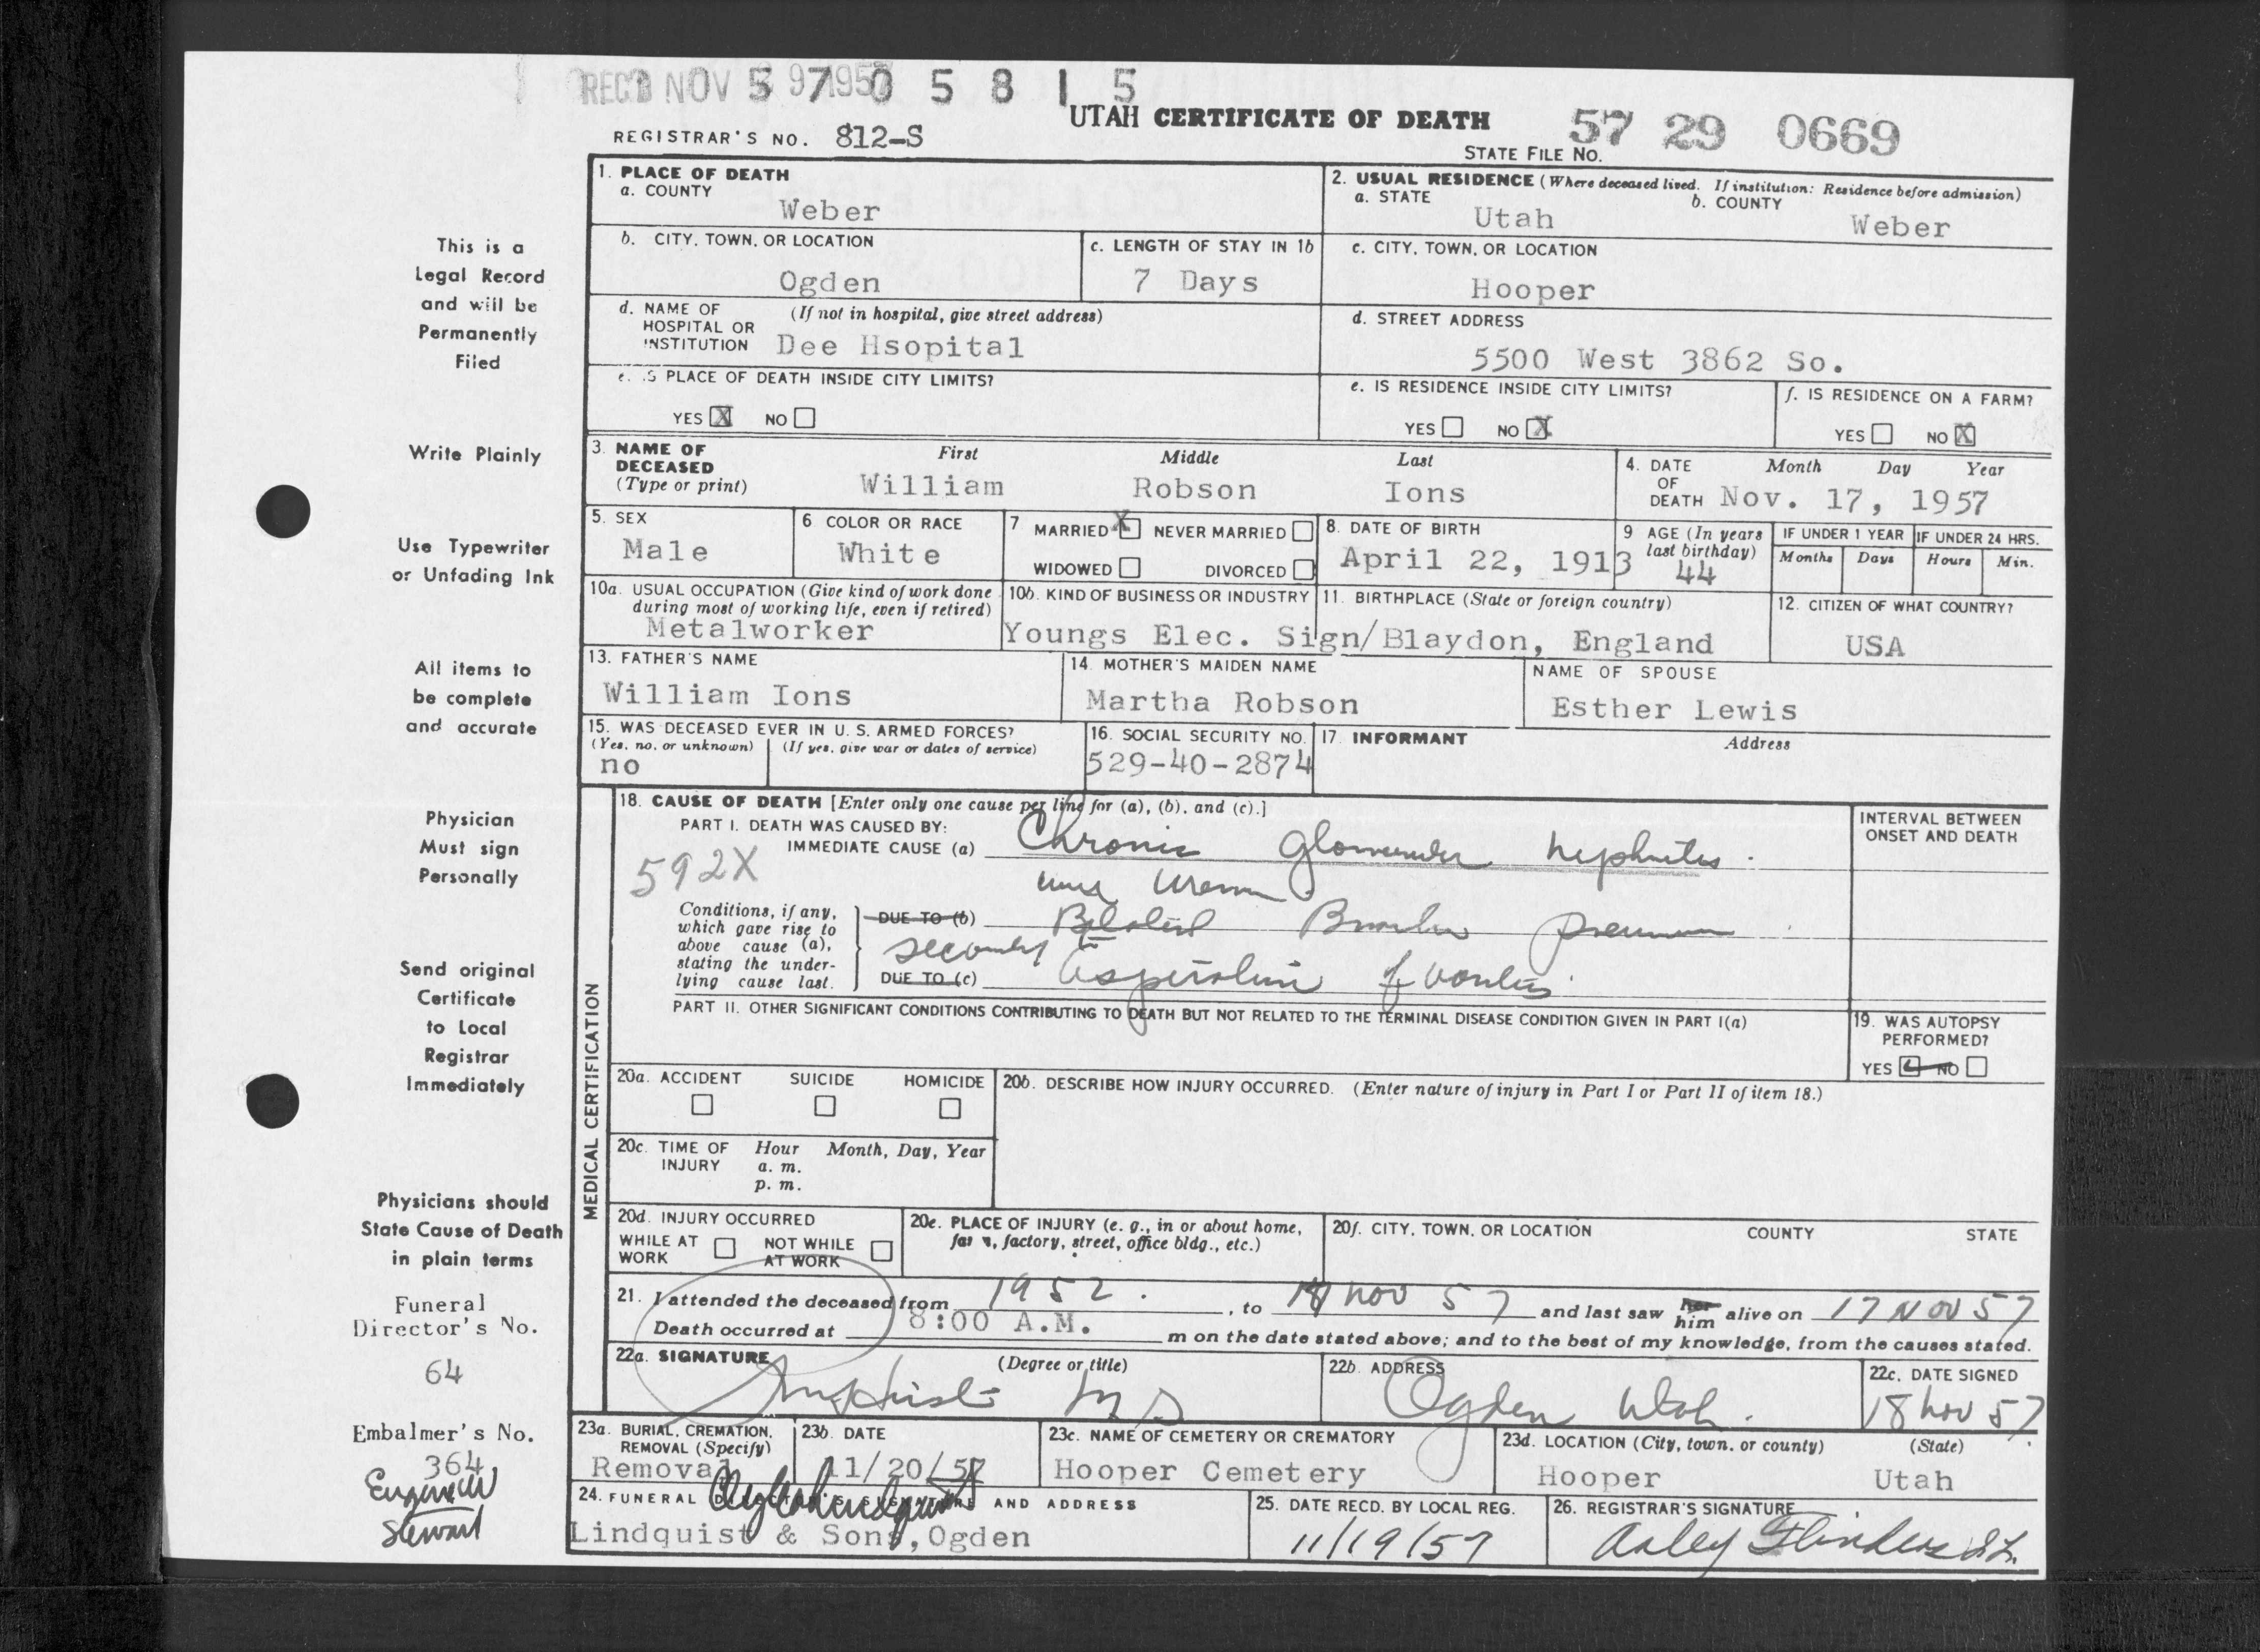 REC'D NOV 1957
5 7 0 5 8 1 5
UTAH CERTIFICATE OF DEATH
REGISTRAR'S NO. 812-S
STATE FILE NO. 57 29 0669
1. PLACE OF DEATH
a. COUNTY
Weber
2. USUAL RESIDENCE (Where deceased lived. If institution: Residence before admission)
a. STATE b. COUNTY
Utah Weber
b. CITY, TOWN, OR LOCATION
Ogden
c. LENGTH OF STAY IN 1b
7 Days
c. CITY, TOWN, OR LOCATION
Hooper
d. NAME OF HOSPITAL OR INSTITUTION (If not in hospital, give street address)
Dee Hsopital
d. STREET ADDRESS
5500 West 3862 So.
e. IS PLACE OF DEATH INSIDE CITY LIMITS?
YES X NO
e. IS RESIDENCE INSIDE CITY LIMITS?
YES NO X
f. IS RESIDENCE ON A FARM?
YES NO X
3. NAME OF DECEASED (Type or print)
First Middle Last
William Robson Ions
4. DATE OF DEATH Month Day Year
Nov. 17, 1957
5. SEX
Male
6 COLOR OR RACE
White
7 MARRIED X NEVER MARRIED
WIDOWED DIVORCED
8. DATE OF BIRTH
April 22, 1913
9 AGE (In years last birthday)
44
IF UNDER 1 YEAR IF UNDER 24 HRS.
Months Days Hours Min.
10a. USUAL OCCUPATION (Give kind of work done during most of working life, even if retired)
Metalworker
10b. KIND OF BUSINESS OR INDUSTRY
11. BIRTHPLACE (State or foreign country)
Youngs Elec. Sign/Blaydon, England
12. CITIZEN OF WHAT COUNTRY?
USA
13. FATHER'S NAME
William Ions
14. MOTHER'S MAIDEN NAME
Martha Robson
NAME OF SPOUSE
Esther Lewis
15. WAS DECEASED EVER IN U. S. ARMED FORCES?
(Yes, no, or unknown) (If yes, give war or dates of service)
no
16. SOCIAL SECURITY NO.
529-40-2874
17. INFORMANT Address
MEDICAL CERTIFICATION
18. CAUSE OF DEATH [Enter only one cause per line for (a), (b), and (c).]
PART I. DEATH WAS CAUSED BY:
IMMEDIATE CAUSE (a) Chronic glomerular nephritis.
592X
Conditions, if any, which gave rise to above cause (a), stating the underlying cause last.
DUE TO (b)
secondary to
DUE TO (c) aspiration of
INTERVAL BETWEEN ONSET AND DEATH
PART II. OTHER SIGNIFICANT CONDITIONS CONTRIBUTING TO DEATH BUT NOT RELATED TO THE TERMINAL DISEASE CONDITION GIVEN IN PART I(a)
19. WAS AUTOPSY PERFORMED?
YES NO
20a. ACCIDENT SUICIDE HOMICIDE
20b. DESCRIBE HOW INJURY OCCURRED. (Enter nature of injury in Part I or Part II of item 18.)
20c. TIME OF INJURY Hour Month, Day, Year
a. m.
p. m.
20d. INJURY OCCURRED
WHILE AT WORK NOT WHILE AT WORK
20e. PLACE OF INJURY (e. g., in or about home, farm, factory, street, office bldg., etc.)
20f. CITY, TOWN, OR LOCATION COUNTY STATE
21. I attended the deceased from 1952. , to nov 57 and last saw her him alive on 17 Nov 57
Death occurred at 8:00 A.M. m on the date stated above; and to the best of my knowledge, from the causes stated.
22a. SIGNATURE (Degree or title)
MD
22b. ADDRESS
Ogden Utah.
22c. DATE SIGNED
18 nov 57
23a. BURIAL, CREMATION, REMOVAL (Specify)
Removal
23b. DATE
11/20/57
23c. NAME OF CEMETERY OR CREMATORY
Hooper Cemetery
23d. LOCATION (City, town, or county) (State)
Hooper Utah
24. FUNERAL DIRECTOR'S SIGNATURE AND ADDRESS
Lindquist & Sons, Ogden
25. DATE RECD. BY LOCAL REG.
11/19/57
26. REGISTRAR'S SIGNATURE
Arley Flinders
This is a
Legal Record
and will be
Permanently
Filed
Write Plainly
Use Typewriter
or Unfading Ink
All items to
be complete
and accurate
Physician
Must sign
Personally
Send original
Certificate
to Local
Registrar
Immediately
Physicians should
State Cause of Death
in plain terms
Funeral
Director's No.
64
Embalmer's No.
364
Eugene W
Stewart